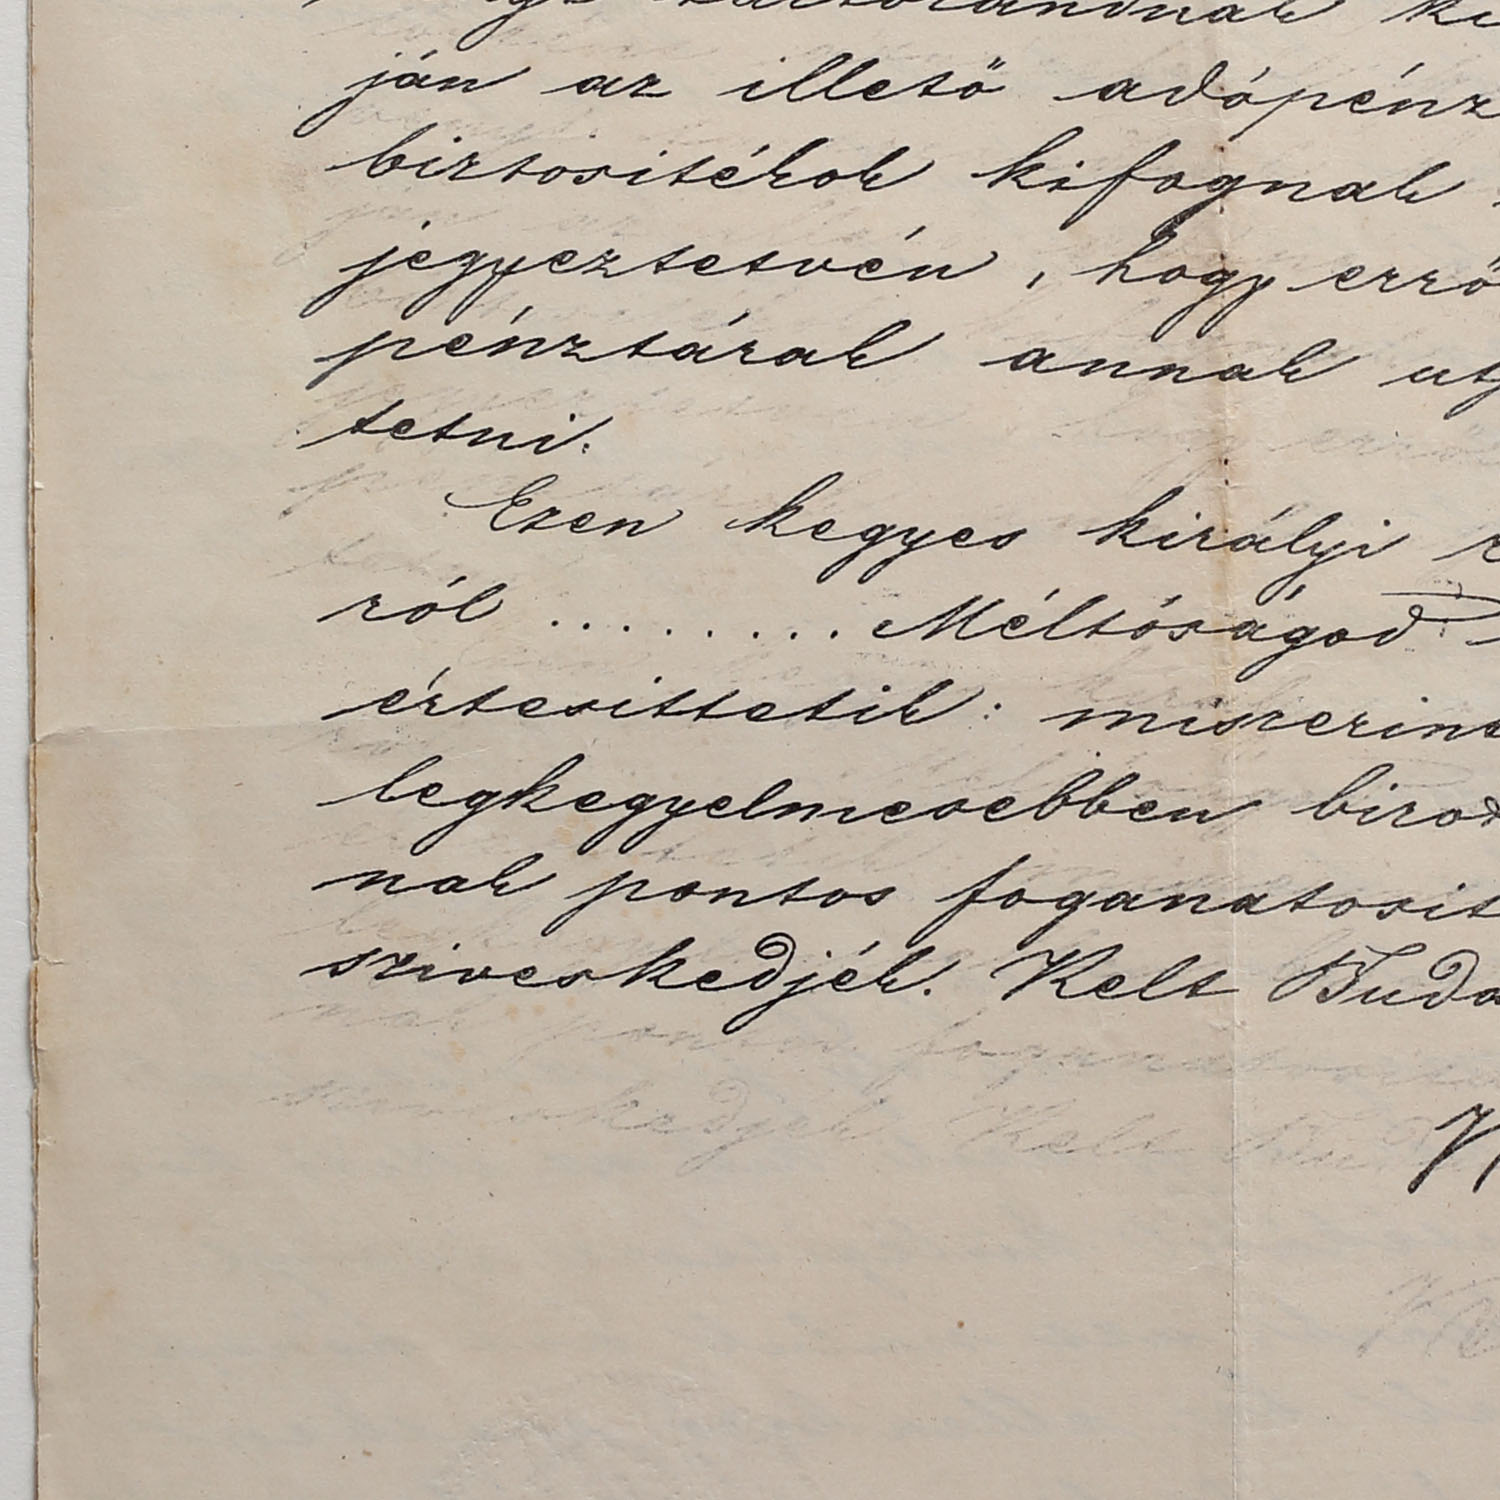 ján az illető adópénz
biztositékok kifognak
jegyeztetvén, hogy erről
pénztárak annak utj
tetni.
Ezen kegyes királyi
ról ......... Méltóságod
értesittetik: miszerint
legkegyelmesebben birod
nak pontos foganatosit
sziveskedjék. Kelt Buda